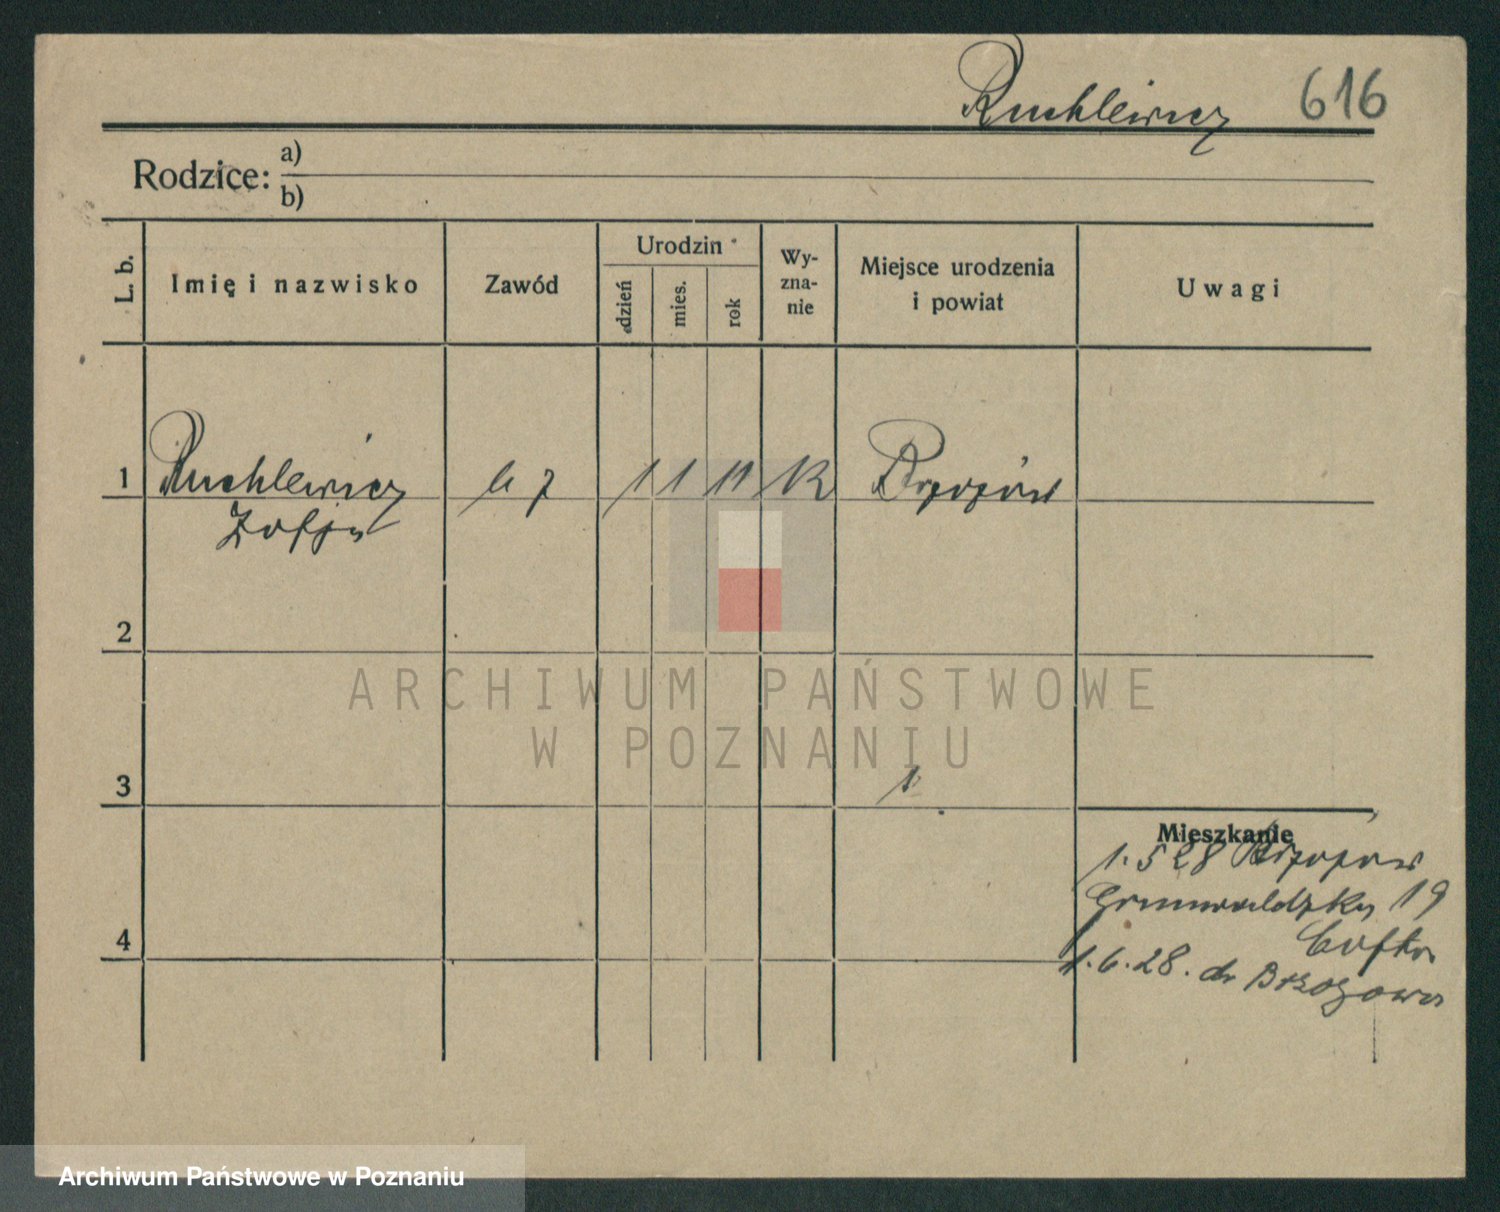 Ruchlewicz 616
Rodzice: a)
b)
L. b. Imię i nazwisko Zawód Urodzin Wy-
zna-
nie Miejsce urodzenia
i powiat Uwagi
dzień mies. rok
1 Ruchlewicz 1 1 11 K
Zofja
2
ARCHIWUM PAŃSTWOWE
W POZNANIU
3
Mieszkanie
1.5 28
Grunwaldzka 19
4
1.6.28. do Brzozowa
Archiwum Państwowe w Poznaniu